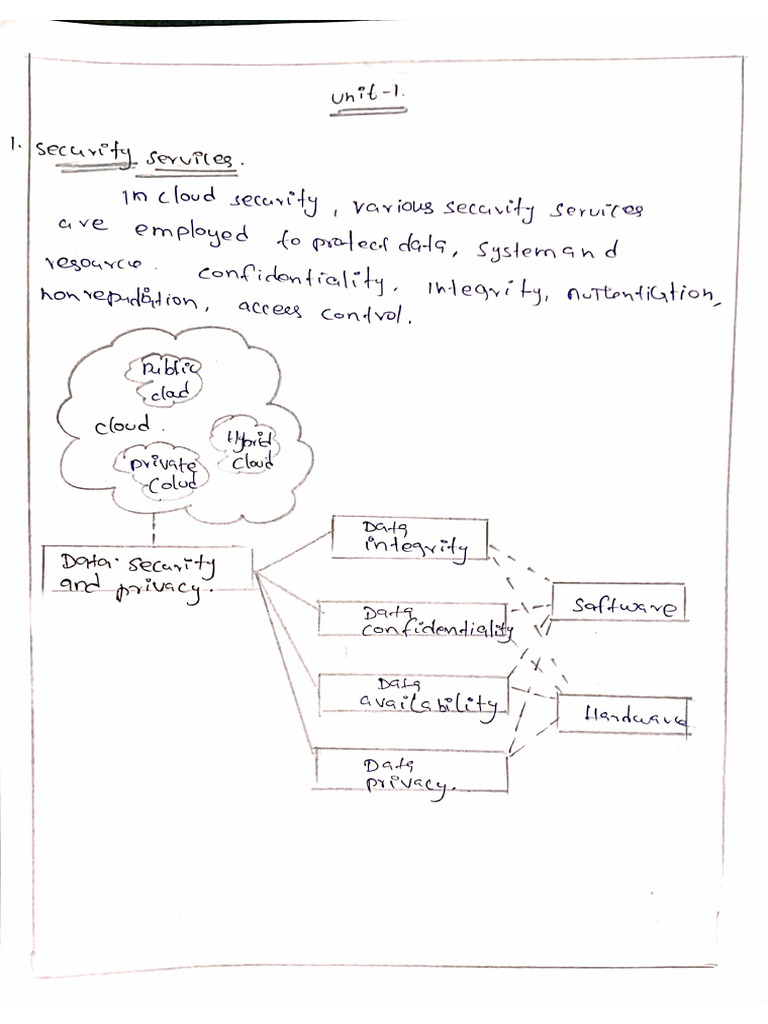 Unit-1.
1. Security services.
In cloud security, various security services
are employed to protect data, system and
resource. confidentiality, integrity, auttentication,
non repudiation, access control.
public
clad
cloud.
Hybrid
cloud
private
Colud
Data
integrity
Data security
and privacy.
Saftware
Data
confidentiality
Data
availability
Hardware
Data
privacy.